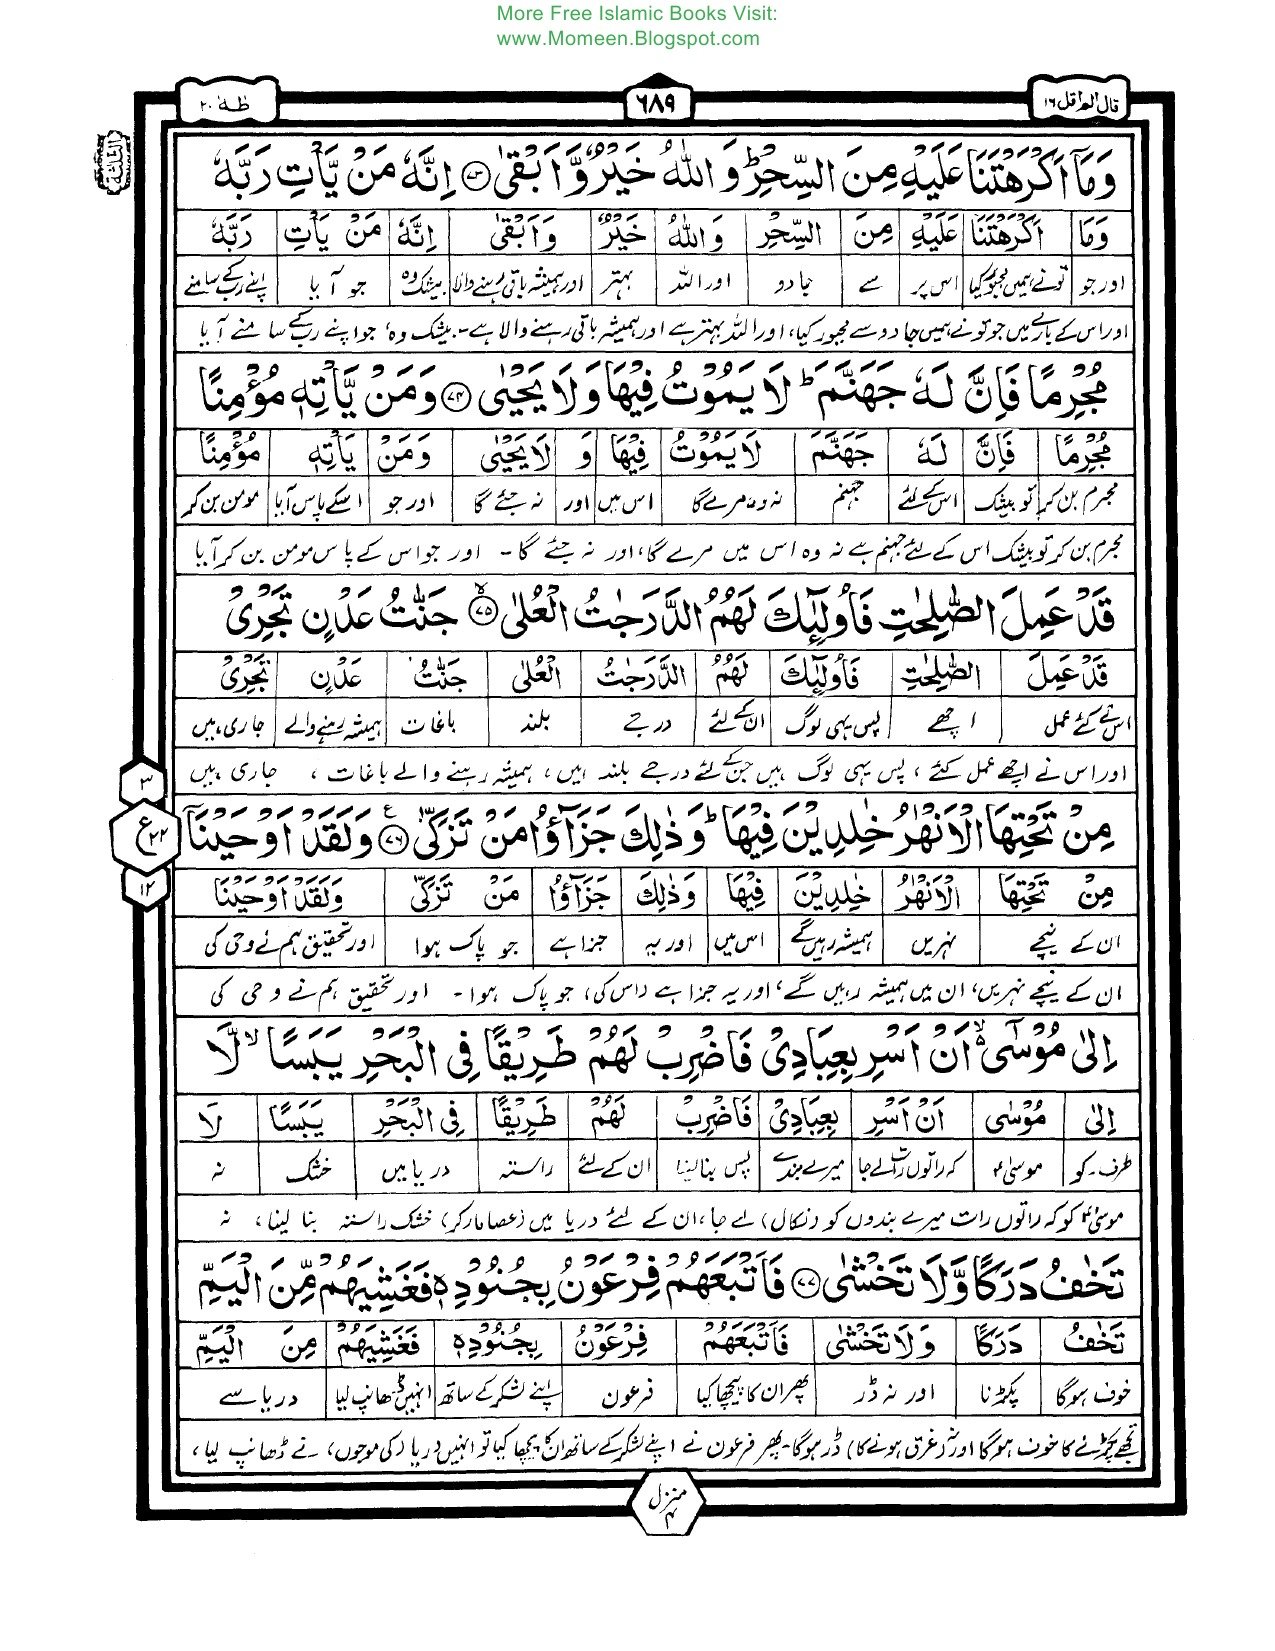 More Free Islamic Books Visit:
www.Momeen.Blogspot.com
قال الم اقل ١٦
٦٨٩
طٰهٰ ٢٠
الثلثة
وَمَآ اَكْرَهْتَنَا عَلَيْهِ مِنَ السِّحْرِ ؕ وَ اللّٰهُ خَيْرٌ وَّ اَبْقٰى ﴿٧٣﴾ اِنَّهٗ مَنْ يَّاْتِ رَبَّهٗ
وَمَا اَكْرَهْتَنَا عَلَيْهِ مِنَ السِّحْرِ وَاللّٰهُ خَيْرٌ وَاَبْقٰى اِنَّهٗ مَنْ يَاْتِ رَبَّهٗ
اور جو تونے ہمیں مجبور کیا اس پر سے جادو اور اللہ بہتر اور ہمیشہ باقی رہنے والا بیشک وہ جو آیا اپنے رب کے سامنے
اور اس کے بارے میں جو تو نے ہمیں جادو سے مجبور کیا، اور اللہ بہتر ہے اور ہمیشہ باقی رہنے والا ہے۔ بیشک وہ، جو اپنے رب کے سامنے آیا
مُجْرِمًا فَاِنَّ لَهٗ جَهَنَّمَ ؕ لَا يَمُوْتُ فِيْهَا وَ لَا يَحْيٰى ﴿٧٤﴾ وَمَنْ يَّاْتِهٖ مُؤْمِنًا
مُجْرِمًا فَاِنَّ لَهٗ جَهَنَّمَ لَا يَمُوْتُ فِيْهَا وَ لَا يَحْيٰى وَمَنْ يَاْتِهٖ مُؤْمِنًا
مجرم بن کر تو بیشک اس کے لئے جہنم نہ وہ مرے گا اس میں اور نہ جئے گا اور جو اسکے پاس آیا مومن بن کر
مجرم بن کر تو بیشک اس کے لئے جہنم ہے نہ وہ اس میں مرے گا، اور نہ جئے گا۔ اور جو اس کے پاس مومن بن کر آیا
قَدْ عَمِلَ الصّٰلِحٰتِ فَاُولٰٓئِكَ لَهُمُ الدَّرَجٰتُ الْعُلٰى ﴿٧٥﴾ جَنّٰتُ عَدْنٍ تَجْرِيْ
قَدْ عَمِلَ الصّٰلِحٰتِ فَاُولٰٓئِكَ لَهُمُ الدَّرَجٰتُ الْعُلٰى جَنّٰتُ عَدْنٍ تَجْرِيْ
اس نے کئے عمل اچھے پس یہی لوگ ان کے لئے درجے بلند باغات ہمیشہ رہنے والے جاری ہیں
اور اس نے اچھے عمل کئے، پس یہی لوگ ہیں جن کے لئے درجے بلند ہیں، ہمیشہ رہنے والے باغات، جاری ہیں
٣
ع ٢٢
١٢
مِنْ تَحْتِهَا الْاَنْهٰرُ خٰلِدِيْنَ فِيْهَا ؕ وَ ذٰلِكَ جَزٰٓؤُا مَنْ تَزَكّٰى ﴿٧٦﴾ وَلَقَدْ اَوْحَيْنَآ
مِنْ تَحْتِهَا الْاَنْهٰرُ خٰلِدِيْنَ فِيْهَا وَذٰلِكَ جَزٰٓؤُا مَنْ تَزَكّٰى وَلَقَدْ اَوْحَيْنَا
ان کے نیچے نہریں ہمیشہ رہیں گے اس میں اور یہ جزا ہے جو پاک ہوا اور تحقیق ہم نے وحی کی
ان کے نیچے نہریں، ان میں ہمیشہ رہیں گے، اور یہ جزا ہے (اس کی) جو پاک ہوا۔ اور تحقیق ہم نے وحی کی
اِلٰى مُوْسٰٓى ۙ اَنْ اَسْرِ بِعِبَادِيْ فَاضْرِبْ لَهُمْ طَرِيْقًا فِي الْبَحْرِ يَبَسًا ۙ لَّا
اِلٰى مُوْسٰى اَنْ اَسْرِ بِعِبَادِيْ فَاضْرِبْ لَهُمْ طَرِيْقًا فِي الْبَحْرِ يَبَسًا لَا
طرف۔کو موسیٰؑ کہ راتوں رات لے جا میرے بندے پس بنا لینا ان کے لئے راستہ دریا میں خشک نہ
موسیٰؑ کو کہ راتوں رات میرے بندوں کو (نکال) لے جا، ان کے لئے دریا میں (عصا مار کر) خشک راستہ بنا لینا، نہ
تَخٰفُ دَرَكًا وَّ لَا تَخْشٰى ﴿٧٧﴾ فَاَتْبَعَهُمْ فِرْعَوْنُ بِجُنُوْدِهٖ فَغَشِيَهُمْ مِّنَ الْيَمِّ
تَخٰفُ دَرَكًا وَلَا تَخْشٰى فَاَتْبَعَهُمْ فِرْعَوْنُ بِجُنُوْدِهٖ فَغَشِيَهُمْ مِنَ الْيَمِّ
خوف ہوگا پکڑنا اور نہ ڈر پھر ان کا پیچھا کیا فرعون اپنے لشکر کے ساتھ انہیں ڈھانپ لیا دریا سے
تجھے پکڑنے کا خوف ہوگا اور نہ (غرق ہونے کا) ڈر ہوگا۔ پھر فرعون نے اپنے لشکر کے ساتھ ان کا پیچھا کیا تو انہیں دریا (کی موجوں) نے ڈھانپ لیا،
منزل ٤